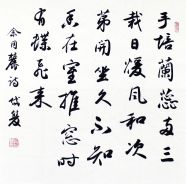 手培蘭蕊两三
栽日暖風和次
第開坐久不知
香在室推窗时
有蝶飛来
余同麓诗